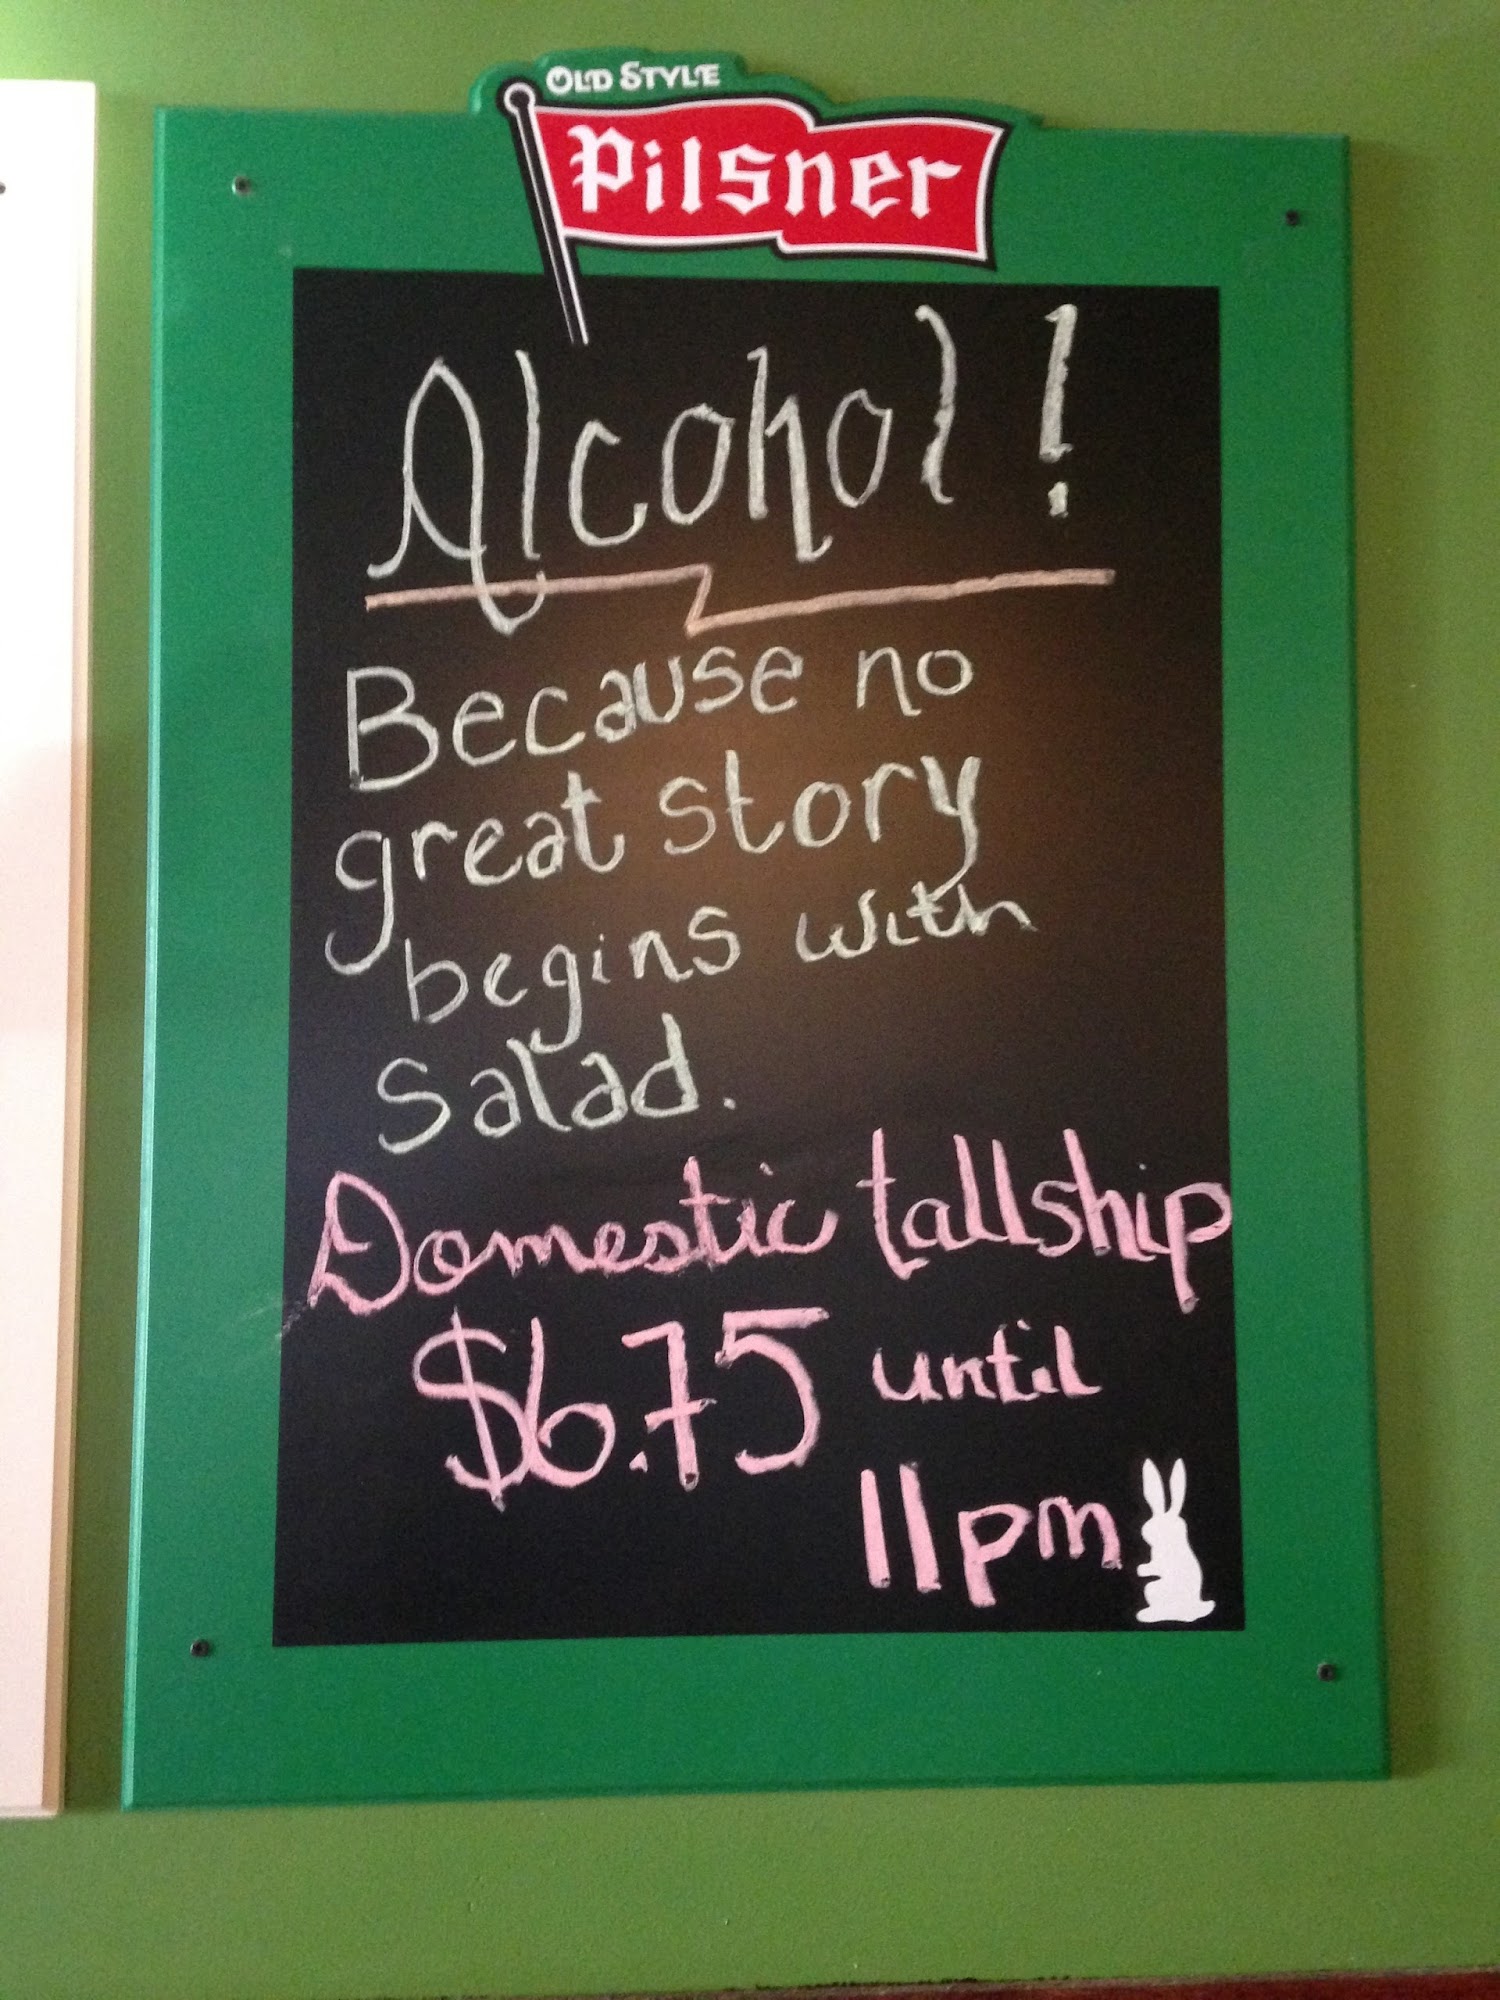 OLD STYLE
Pilsner
Alcohol!
Because no
great story
begins with
Salad.
Domestic tallship
$6.75 until
11pm